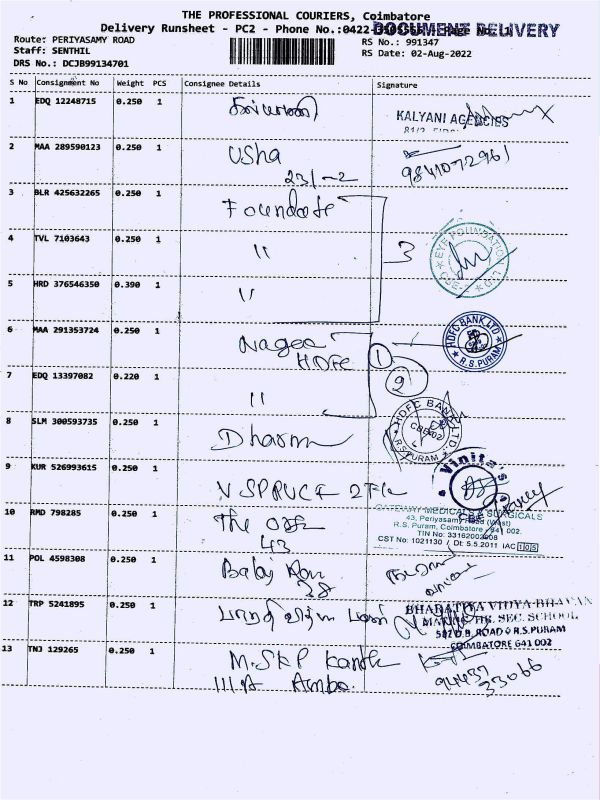 THE PROFESSIONAL COURIERS, Coimbatore
Delivery Runsheet - PC2 - Phone No.:0422- Page No. 1
DOCUMENT DELIVERY
Route: PERIYASAMY ROAD
RS No.: 991347
Staff: SENTHIL
RS Date: 02-Aug-2022
DRS No.: DCJB99134701
S No Consignment No Weight PCS Consignee Details Signature
1 EDQ 12248715 0.250 1
KALYANI AGENCIES
2 MAA 289590123 0.250 1 Usha
23/-2
9841072961
3 BLR 425632265 0.250 1
4 TVL 7103643 0.250 1 "
3
EYE FOUNDATION LTD
CBE-2
5 HRD 376546350 0.390 1 "
6 MAA 291353724 0.250 1
HDFC
1
HDFC BANK LTD
R.S.PURAM
7 EDQ 13397082 0.220 1 "
2
8 SLM 300593735 0.250 1 Dharm
HDFC BANK LTD.
R.S.PURAM
9 KUR 526993615 0.250 1
Vinita's
10 RMD 798285 0.250 1 The
43
GATEWAY MEDICALS & SURGICALS
43, Periyasamy Road (West)
R.S. Puram, Coimbatore - 641 002.
TIN No: 33162002008
CST No: 1021130 / Dt: 5.5.2011 IAC 105
11 POL 4598308 0.250 1 Baby
38
12 TRP 5241895 0.250 1
BHARATIYA VIDYA BHAVAN
MATRIC. HR. SEC. SCHOOL
502 D.B. ROAD R.S.PURAM
COIMBATORE 641 002
13 TNJ 129265 0.250 1 M.SKP
94437
33066